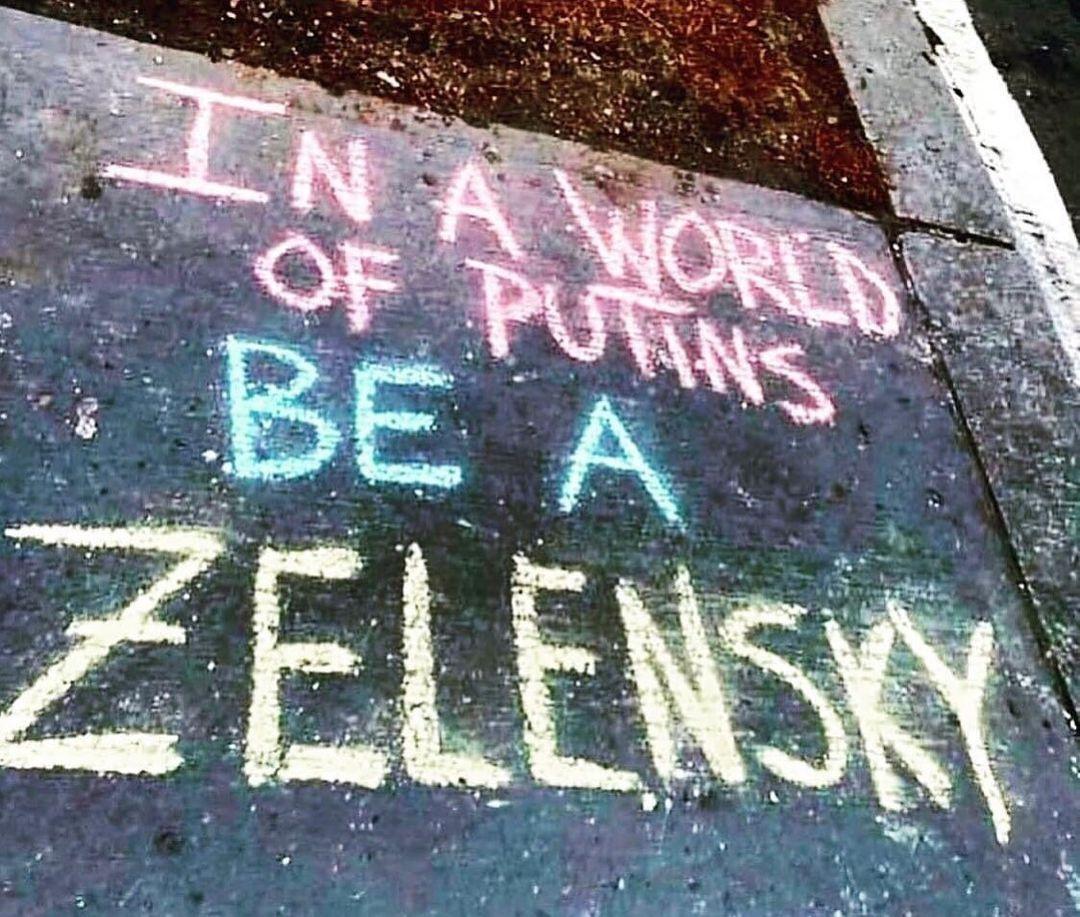 IN A WORLD
OF PUTINS
BE A
ZELENSKY